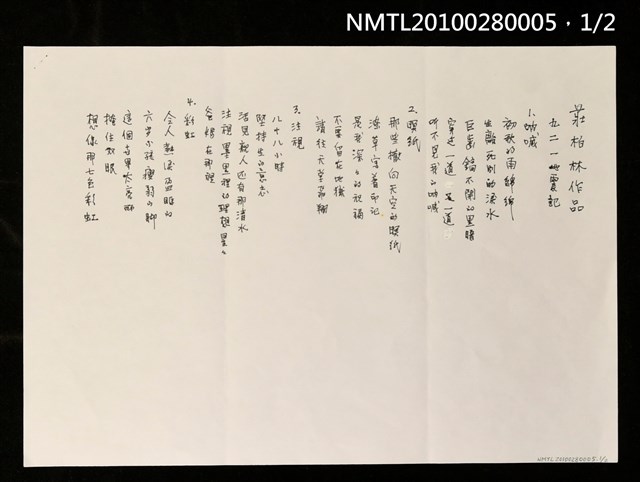 NMTL20100280005，1/2
莊柏林作品
九二一地震記
1. 吶喊
初秋的雨綿綿
生離死別的淚水
巨齒鎖不開的黑暗
穿過一道又一道
聽不見我的吶喊
2. 冥紙
那些撒向天空的冥紙
潦草寫著印記
是我深深的祝福
不要留在地獄
請往天堂飛翔
3. 注視
八十八小時
堅持生的意志
活見親人還有那清水
注視黑黑裡的
爸媽在那裡
4. 彩虹
令人熱淚盈眶的
六歲小孩
這個世界太亮
摀住雙眼
想像那七色彩虹
NMTL20100280005-1/2